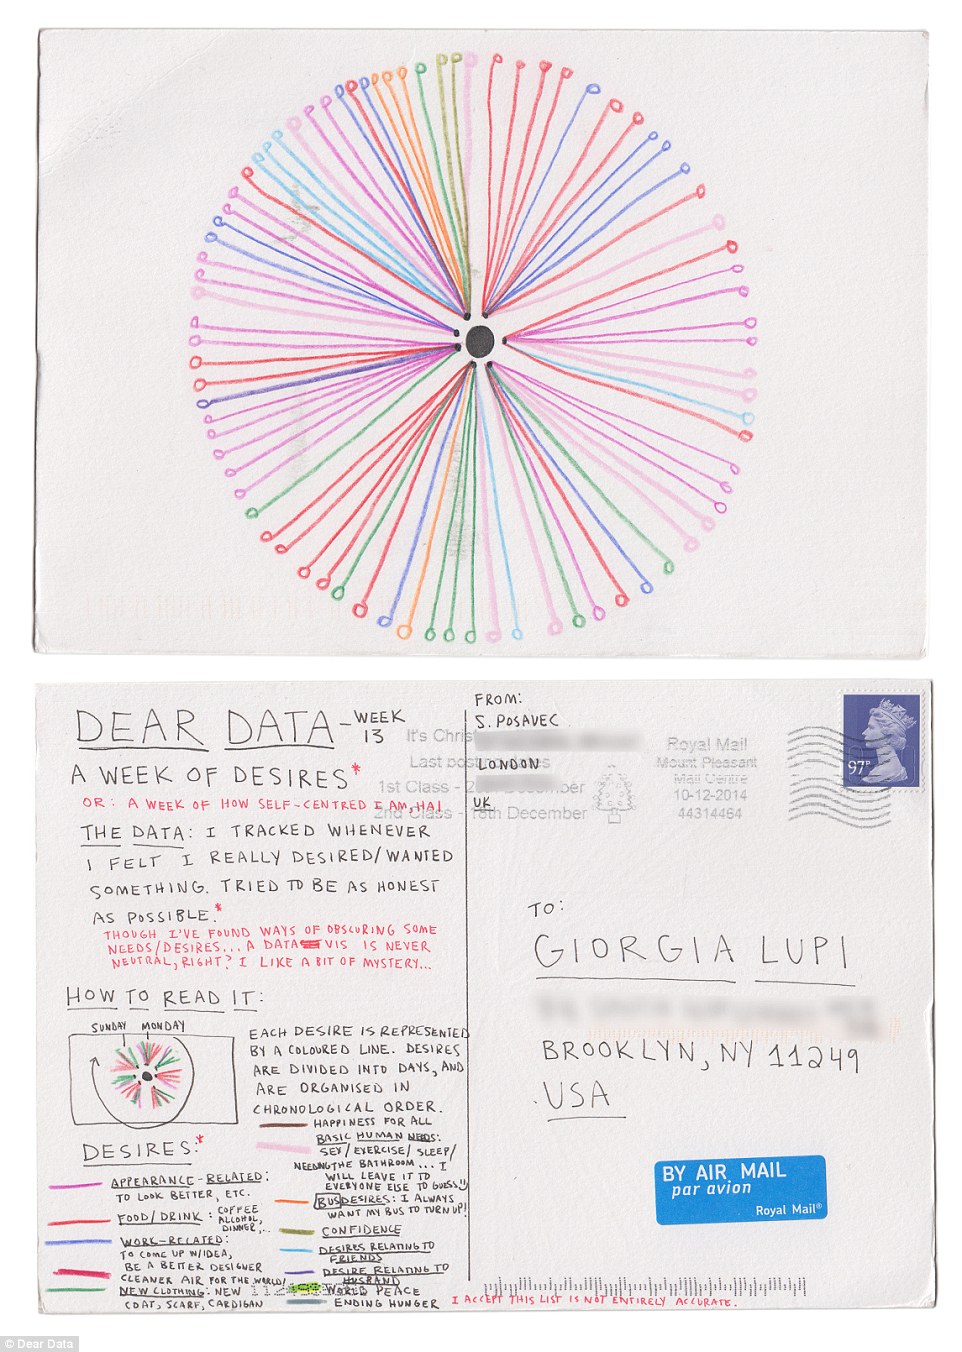 DEAR DATA - WEEK 13
A WEEK OF DESIRES*
OR: A WEEK OF HOW SELF-CENTRED I AM, HA!
THE DATA: I TRACKED WHENEVER
I FELT I REALLY DESIRED/WANTED
SOMETHING. TRIED TO BE AS HONEST
AS POSSIBLE.*
THOUGH I'VE FOUND WAYS OF OBSCURING SOME
NEEDS/DESIRES... A DATA VIS IS NEVER
NEUTRAL, RIGHT? I LIKE A BIT OF MYSTERY...
HOW TO READ IT:
SUNDAY MONDAY
EACH DESIRE IS REPRESENTED
BY A COLOURED LINE. DESIRES
ARE DIVIDED INTO DAYS, AND
ARE ORGANISED IN
CHRONOLOGICAL ORDER.
DESIRES:*
APPEARANCE-RELATED:
TO LOOK BETTER, ETC.
FOOD/DRINK: COFFEE
ALCOHOL,
DINNER,...
WORK-RELATED:
TO COME UP W/IDEA,
BE A BETTER DESIGNER
CLEANER AIR FOR THE WORLD!
NEW CLOTHING: NEW
COAT, SCARF, CARDIGAN
HAPPINESS FOR ALL
BASIC HUMAN NEEDS:
SEX/EXERCISE/SLEEP/
NEEDING THE BATHROOM... I
WILL LEAVE IT TO
EVERYONE ELSE TO GUESS
BUS DESIRES: I ALWAYS
WANT MY BUS TO TURN UP!
CONFIDENCE
DESIRES RELATING TO
FRIENDS
DESIRE RELATING TO
HUSBAND
WORLD PEACE
ENDING HUNGER
I ACCEPT THIS LIST IS NOT ENTIRELY ACCURATE.
FROM:
S. POSAVEC
LONDON
UK
It's Christ
Last post dates
1st Class - December
2nd Class - 18th December
Royal Mail
Mount Pleasant
Mail Centre
10-12-2014
44314464
97P
TO:
GIORGIA LUPI
BROOKLYN, NY 11249
USA
BY AIR MAIL
par avion
Royal Mail®
© Dear Data